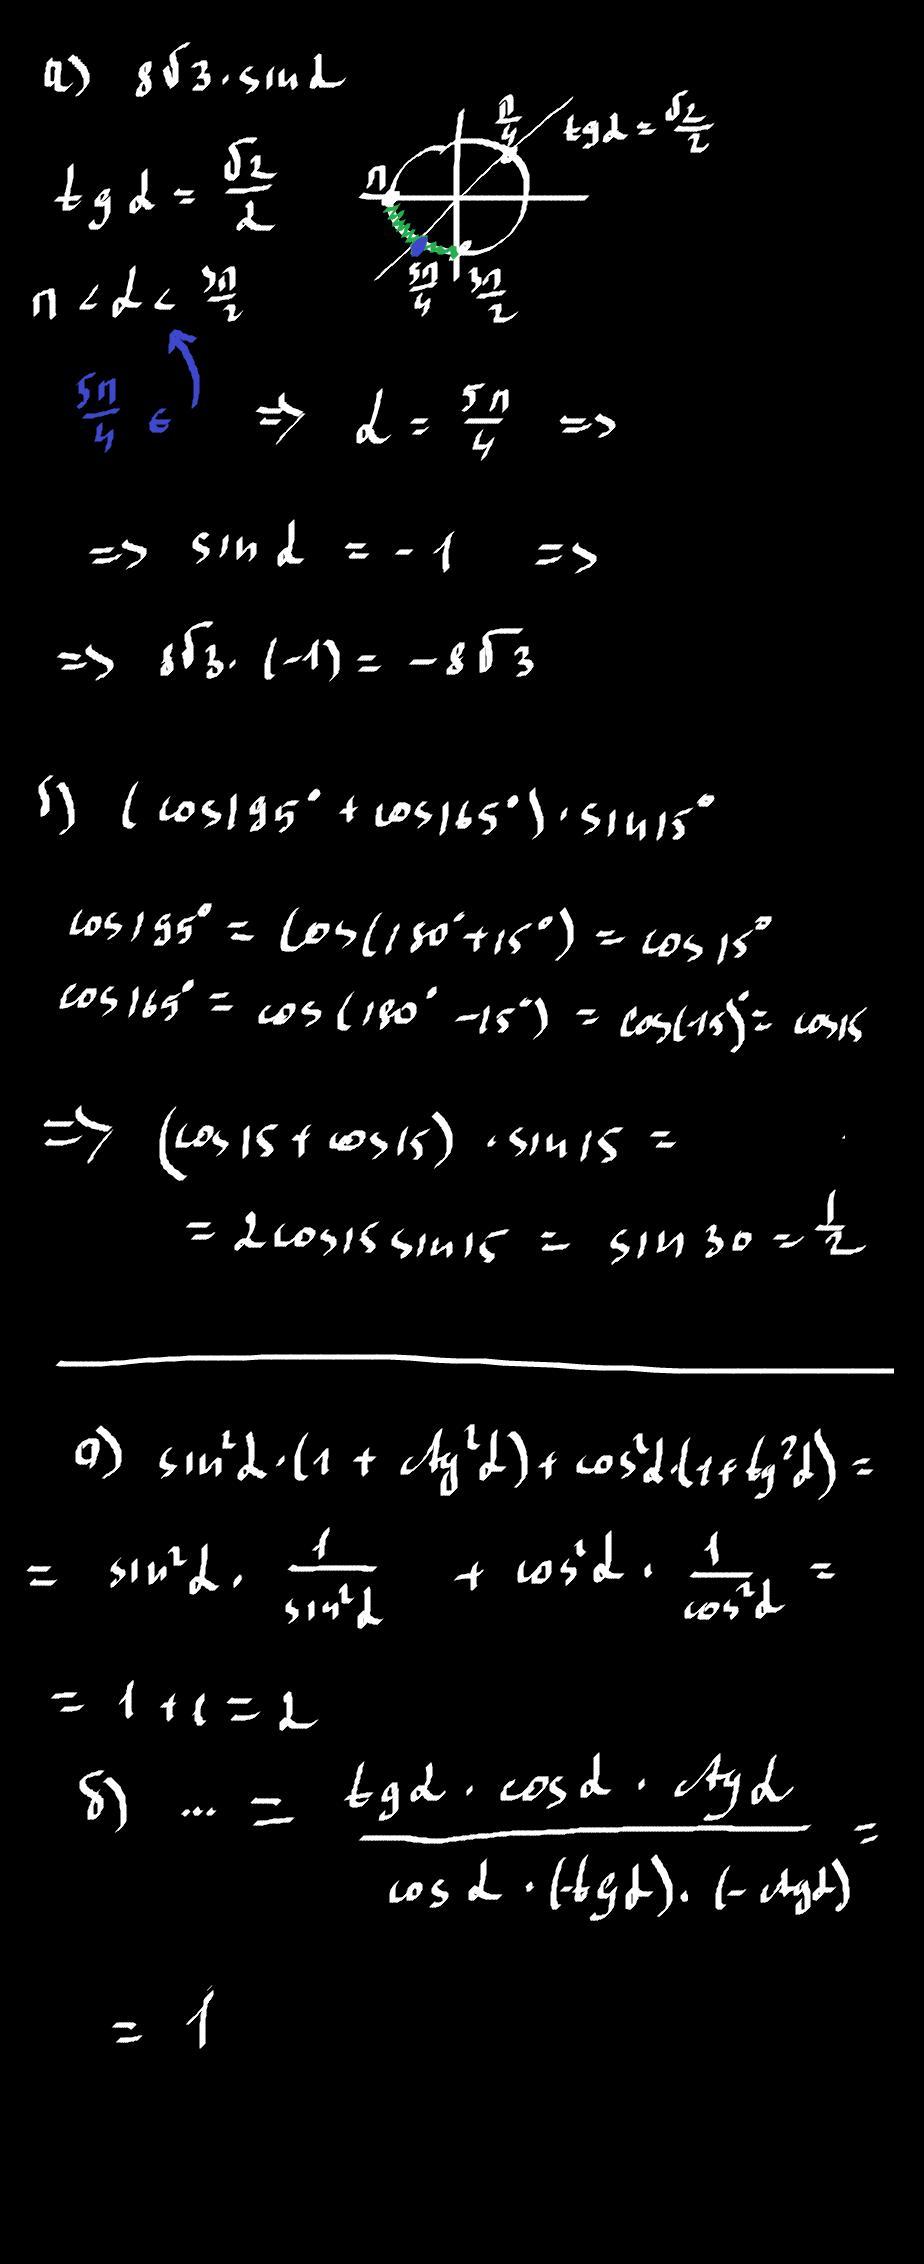 а) 8√3 · sin α
π/4 tg α = √2/2
tg α = √2/2
π
5π/4 3π/2
π < α < 3π/2
5π/4 ∈ => α = 5π/4 =>
=> sin α = -1 =>
=> 8√3 · (-1) = -8√3
б) (cos195° + cos165°) · sin15°
cos195° = cos(180° + 15°) = cos15°
cos165° = cos(180° - 15°) = cos(-15)° = cos15
=> (cos15 + cos15) · sin15 =
= 2cos15 sin15 = sin30 = 1/2
а) sin²α · (1 + ctg²α) + cos²α · (1 + tg²α) =
= sin²α · 1/sin²α + cos²α · 1/cos²α =
= 1 + 1 = 2
б) ... = (tg α · cos α · ctg α)/(cos α · (-tg α) · (-ctg α)) =
= 1